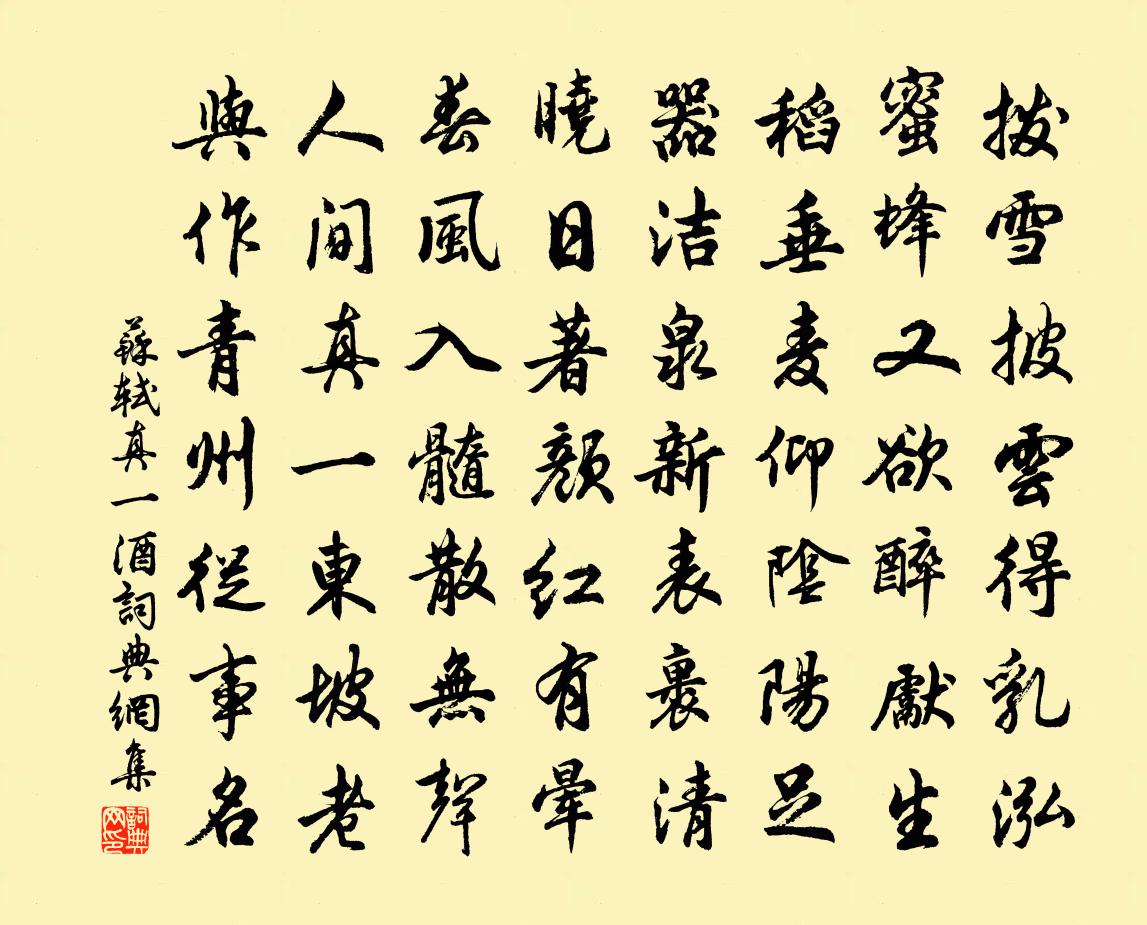 拨雪披雲得乳泓
蜜蜂又欲醉獻生
稻垂麦仰陰陽足
器洁泉新表裹清
曉日著顔红有暈
春風入髓散無聲
人间真一東坡老
與作青州從事名
蘇轼真一酒詞典網集
詞典网印